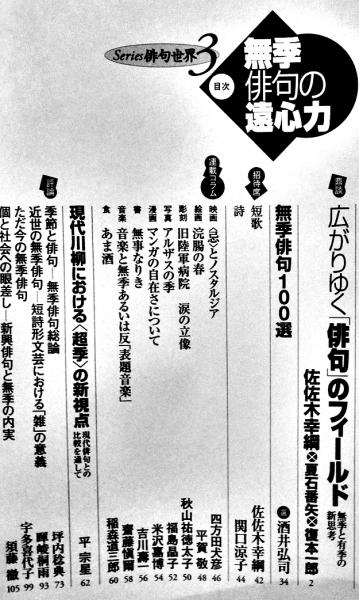 Series 俳句世界 3
無季
俳句の
遠心力
目次
鼎談
広がりゆく「俳句」のフィールド
無季と有季の
新思考
佐佐木幸綱×夏石番矢×復本一郎 2
無季俳句100選
酒井弘司 34
招待席
短歌 佐佐木幸綱 42
詩 関口涼子 44
連載コラム
映画 急行とノスタルジア 四方田犬彦 46
絵画 浣腸の春 平賀敬 48
彫刻 旧陸軍病院 涙の立像 秋山祐徳太子 50
写真 アルザスの季 福島晶子 52
漫画 マンガの自在さについて 米沢嘉博 54
書 無事なりき 吉川壽一 56
音楽 音楽と無季あるいは反「表題音楽」 齋藤愼爾 58
食 あま酒 稲森道三郎 60
現代川柳における〈超季〉の新視点
現代俳句との
比較を通して
平宗星 62
評論
季節と俳句―無季俳句総論 坪内稔典 73
近世の無季俳句―短詩形文芸における「雑」の意義 暉峻桐雨 93
ただ今の無季俳句 宇多喜代子 99
個と社会への眼差し―新興俳句と無季の内実 須藤徹 105